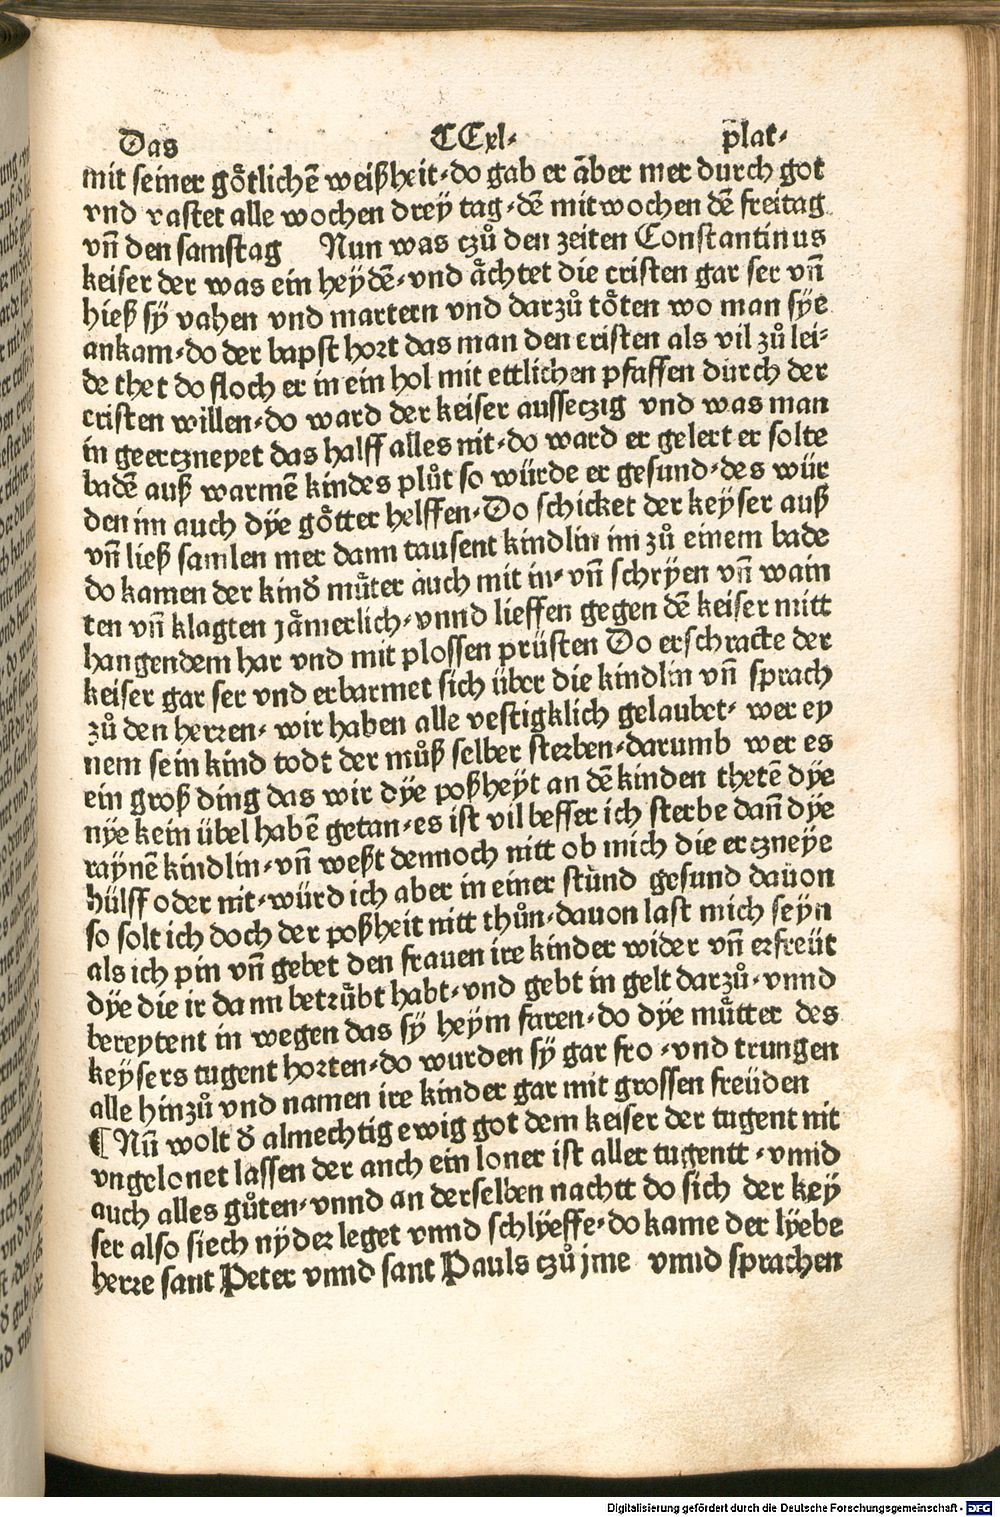 Das CCxl· plat·
mit seiner gȫtlichē weißheit·do gab er āber mer durch got
vnd vastet alle wochen dreÿ tag·dē mitwochen dē freitag
vn̄ den samstag Nun was czů den zeiten Constantinus
keiser der was ein heÿdē·vnd aͤchtet die cristen gar ser vn̄
hieß sÿ vahen vnd martern vnd darzů toͤten wo man sÿe
ankam·do der bapst hort das man den cristen als vil zů lei⸗
de thet do floch er in ein hol mit ettlichen pfaffen durch der
cristen willen·do ward der keiser ausseczig vnd was man
in geerczneyet das halff alles nit·do ward er gelert er solte
badē auß warmē kindes plůt so würde er gesund·des wür
den im auch dÿe goͤtter helffen·Do schicket der keyser auß
vn̄ ließ samlen mer dann tausent kindlin im zů einem bade
do kamen der kind muͤter auch mit in·vn̄ schrÿen vn̄ wain
ten vn̄ klagten jaͤmerlich·vnnd lieffen gegen dē keiser mitt
hangendem har vnd mit plossen prüsten Do erschracte der
keiser gar ser vnd erbarmet sich über die kindlin vn̄ sprach
zů den herren·wir haben alle vestigklich gelaubet·wer ey
nem sein kind todt der můß selber sterben·darumb wer es
ein groß ding das wir dÿe poßheÿt an dē kinden thetē dÿe
nÿe kein übel habē getan·es ist vil besser ich sterbe dan̄ dÿe
raÿnē kindlin·vn̄ weßt dennoch nitt ob mich die erczneÿe
hülff oder nit·würd ich aber in einer stund gesund dauon
so solt ich doch der poßheit nitt thůn·dauon last mich seÿn
als ich pin vn̄ gebet den frauen ire kinder wider vn̄ erfreüt
dÿe die ir dann betruͤbt habt·vnd gebt in gelt darzů·vnnd
bereytent in wegen das sÿ heÿm faren·do dÿe muͤtter des
keÿsers tugent horten·do wurden sÿ gar fro·vnd trungen
alle hinzů vnd namen ire kinder gar mit grossen freüden
¶ Nūn wolt d̄ almechtig ewig got dem keiser der tugent nit
vngelonet lassen der auch ein loner ist aller tugentt·vnnd
auch alles gůten·vnnd an derselben nachtt do sich der key
ser also siech nÿder leget vnnd schlÿeffe·do kame der lÿebe
herre sant Peter vnnd sant Pauls czů jme vnnd sprachen
Digitalisierung gefördert durch die Deutsche Forschungsgemeinschaft - DFG